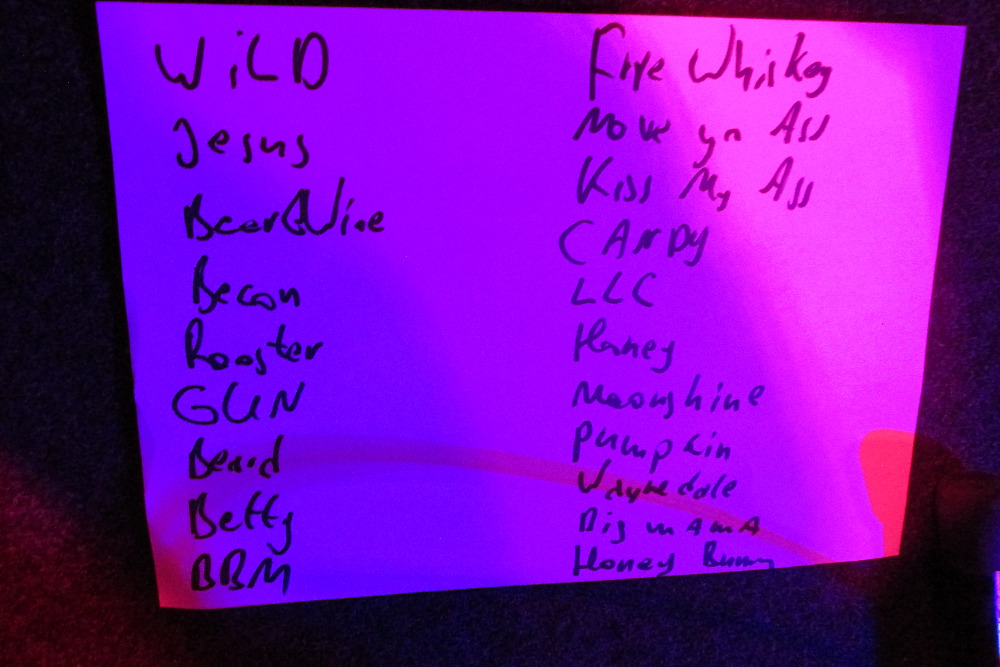 WiLD
Jesus
Beer&Wine
Becon
Rooster
GUN
Beard
Betty
BBM
Fire Whiskey
Move yn Ass
Kiss My Ass
CANDY
LLC
Honey
Moonshine
Pumpkin
Waynedale
Big mAmA
Honey Bunny